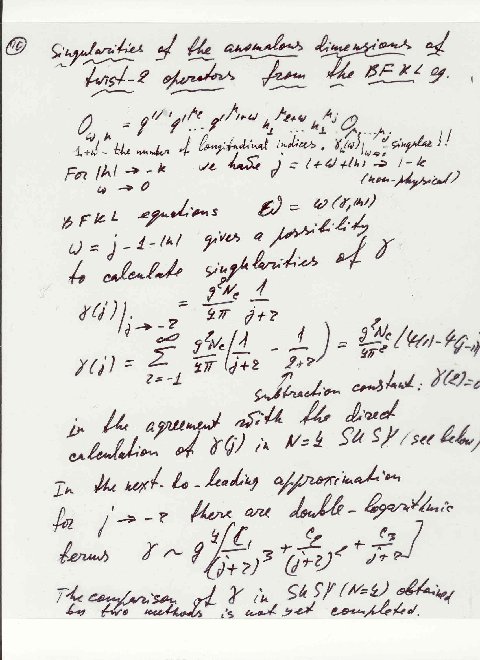 10
Singularities of the anomalous dimensions of
twist-2 operators from the BFKL eq.
1+ω - the number of longitudinal indices, γ(ω)| singular!!
For |n| → -k we have j = 1+ω+|n| → 1-k
ω → 0 (non-physical)
BFKL equations ω = ω(γ,|n|)
ω = j-1-|n| gives a possibility
to calculate singularities of γ
γ(j)|j→-r = g²Nc/4π² 1/j+r
γ(j) = Σ r=-1 ∞ g²Nc/4π² (1/j+r - 1/2+r) = g²Nc/4π² (Ψ(1)-Ψ(j-1))
subtraction constant: γ(2)=0
in the agreement with the direct
calculation of γ(j) in N=4 SUSY (see below)
In the next-to-leading approximation
for j → -r there are double-logarithmic
terms γ ~ g⁴ [c₁/(j+r)³ + c₂/(j+r)² + c₃/j+r]
The comparison of γ in SUSY (N=4) obtained
by two methods is not yet completed.